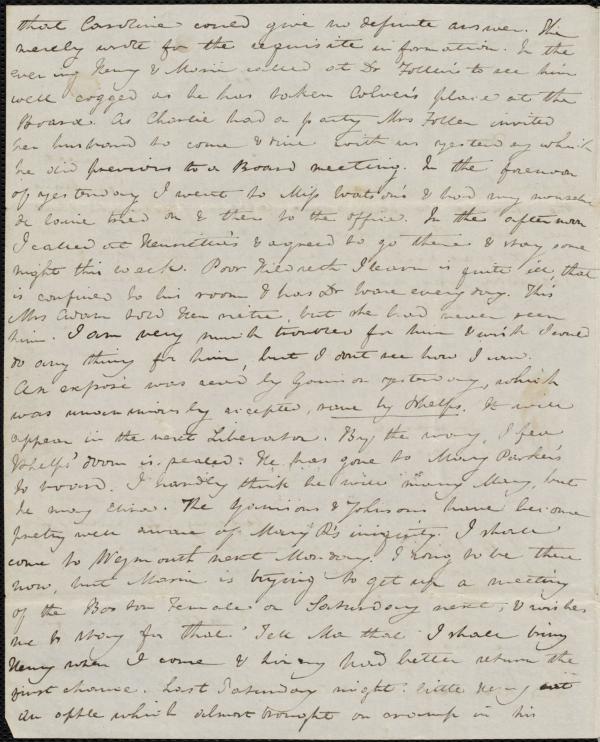 that Caroline could give no definite answer. She
merely wrote for the requisite information. In the
evening Henry & Maria called at Dr Follen's to see him
well cogged as he has taken Colver's place at the
Board. As Charlie had a party Mrs Follen invited
her husband to come & dine with us yesterday which
he did previous to a Board meeting. In the forenoon
of yesterday I went to Miss Watson's & had my mousseline
de laine tried on & then to the office. In the afternoon
I called at Henrietta's & agreed to go there & stay some
night this week. Poor Hildreth I learn is quite ill, that
is confined to his room & has Dr Ware every day. This
Mrs told Henrietta, but she had never seen
him. I am very much troubled for him & wish I could
do any thing for him, but I don't see how I can.
An exposé was read by Garrison yesterday, which
was unanimously accepted, save by Phelps. It will
appear in the next Liberator. By the way, I fear
Phelps' doom is sealed. He has gone to Mary Parker's
to board. I hardly think he will marry Mary, but
he may Eliza. The Garrisons & Johnsons have become
pretty well aware of Mary P's iniquity. I shall
come to Weymouth next Monday. I long to be there
now, but Maria is trying to get up a meeting
of the Boston Female on Saturday next, & wishes
me to stay for that. Tell Ma that I shall bring
Henry when I come & had better return the
first chance. Last Saturday night little Henry eat
an apple which almost brought on cramp in his